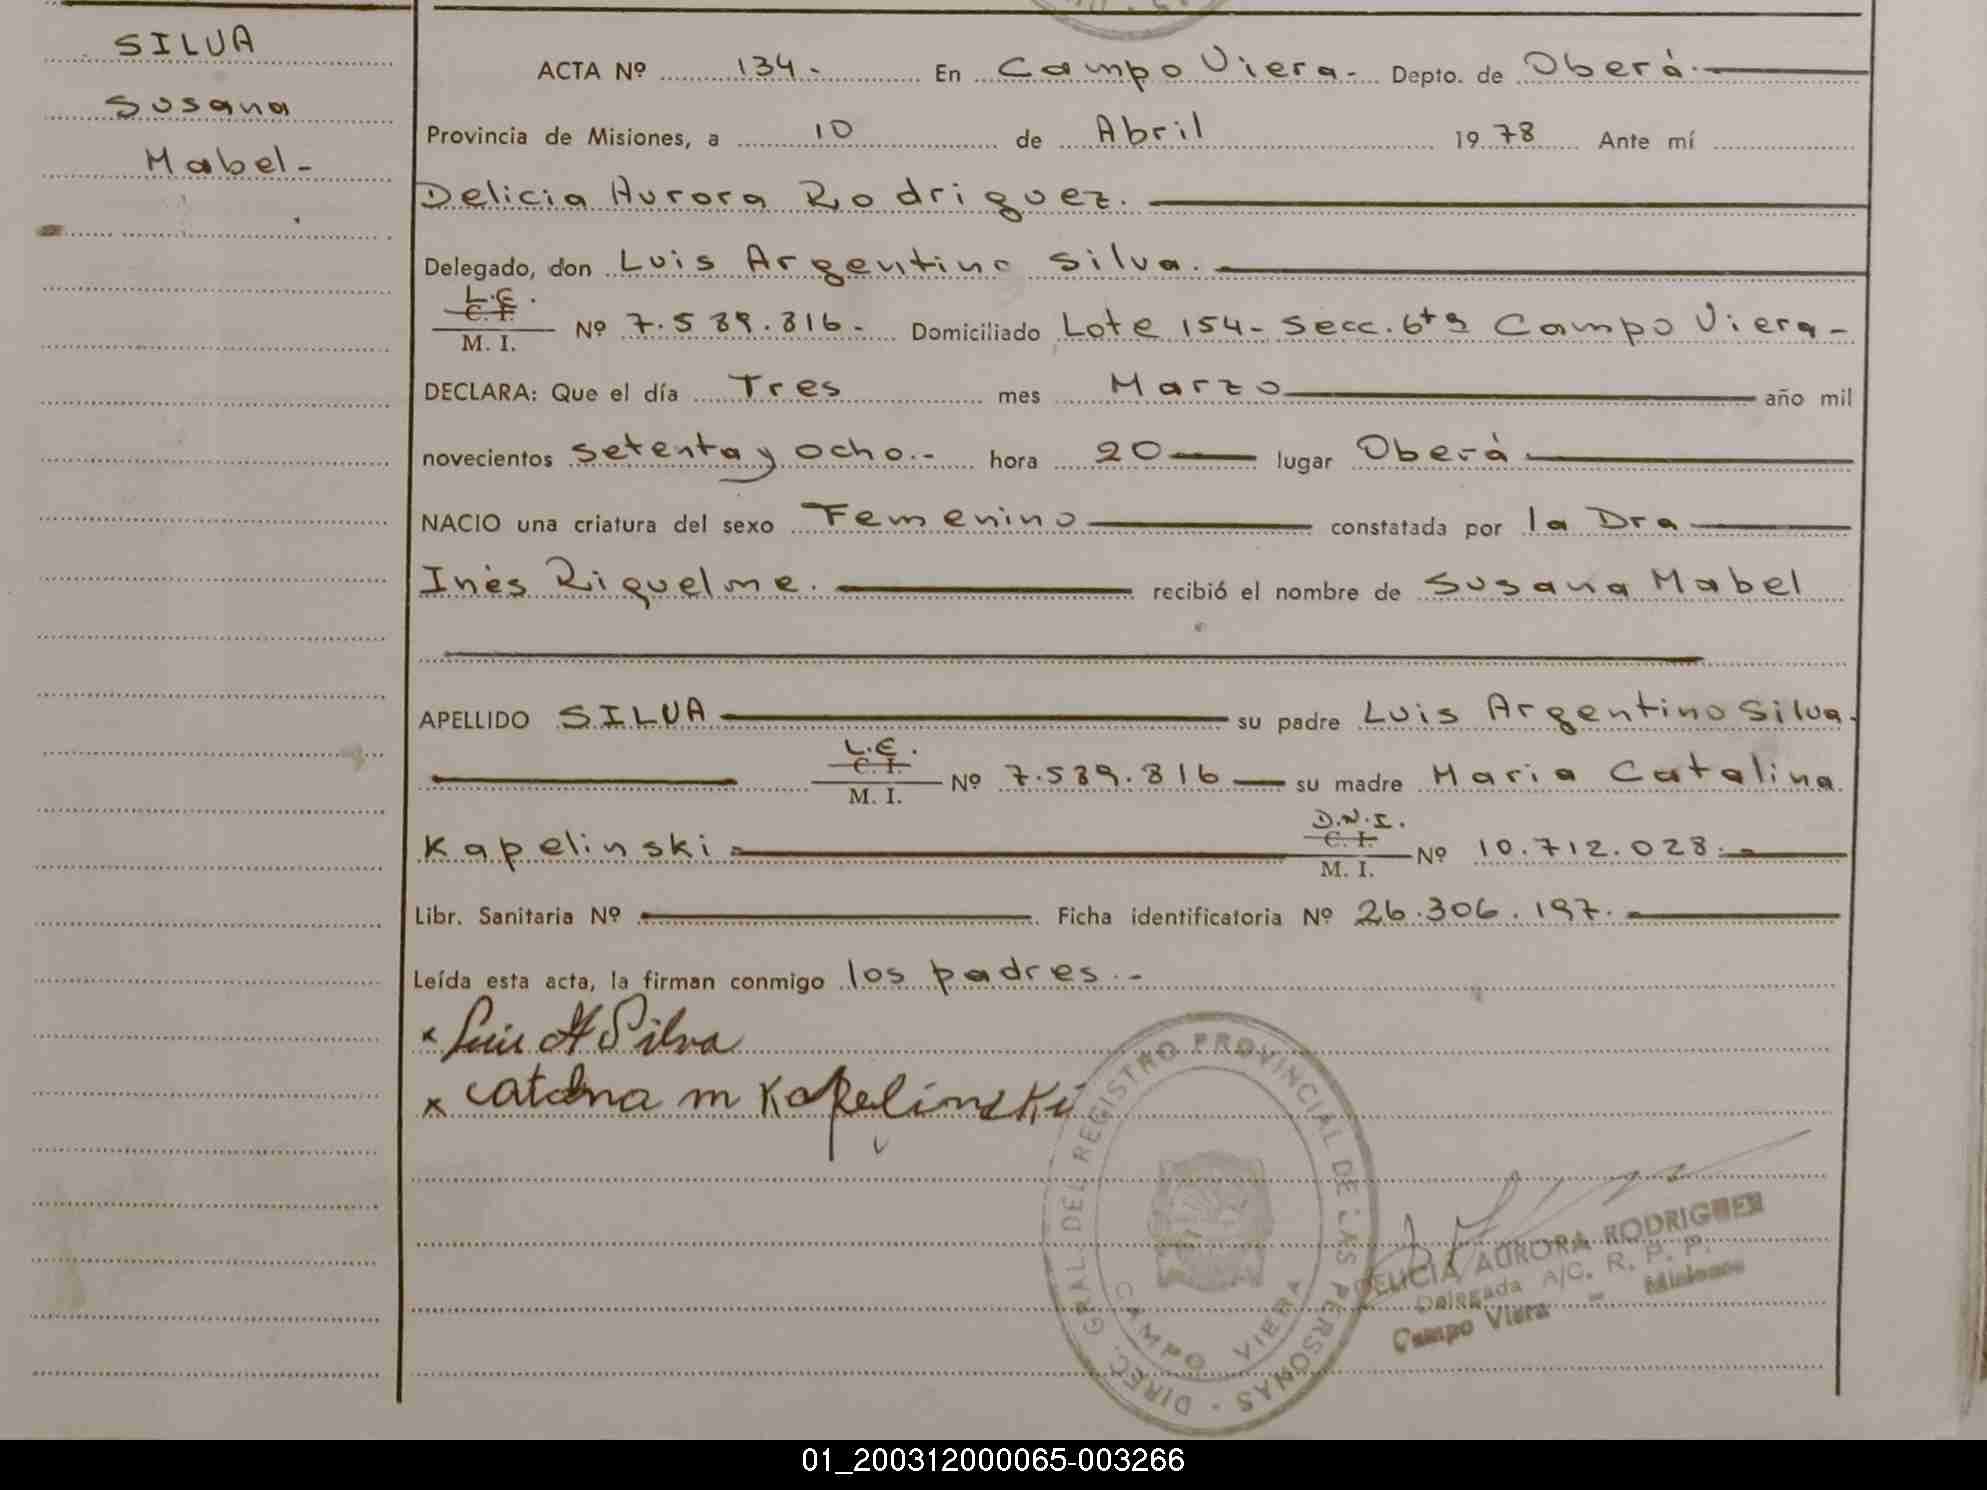 SILVA
Susana
Mabel-
ACTA Nº 134- En Campo Viera- Depto. de Oberá.
Provincia de Misiones, a 10 de Abril 1978 Ante mí
Delicia Aurora Rodriguez.
Delegado, don Luis Argentino Silva.
L.E.
C. I.
M. I. Nº 7.539.316- Domiciliado Lote 154- Secc. 6ta Campo Viera-
DECLARA: Que el día Tres mes Marzo año mil
novecientos setenta y ocho.- hora 20 lugar Oberá
NACIO una criatura del sexo Femenino constatada por la Dra
Inés Riquelme. recibió el nombre de Susana Mabel
APELLIDO SILVA su padre Luis Argentino Silva.
L.E.
C. I.
M. I. Nº 7.539.316 su madre Maria Catalina
Kapelinski
D.N.I.
C. I.
M. I. Nº 10.712.028.-
Libr. Sanitaria Nº Ficha identificatoria Nº 26.306.197.-
Leída esta acta, la firman conmigo los padres.-
x Luis A Silva
x Catalina m Kapelinski
DIREC. GRAL. DEL REGISTRO PROVINCIAL DE LAS PERSONAS
CAMPO VIERA
DELICIA AURORA RODRIGUEZ
Delegada A/C. R. P. P.
Campo Viera - Misiones
01_200312000065-003266